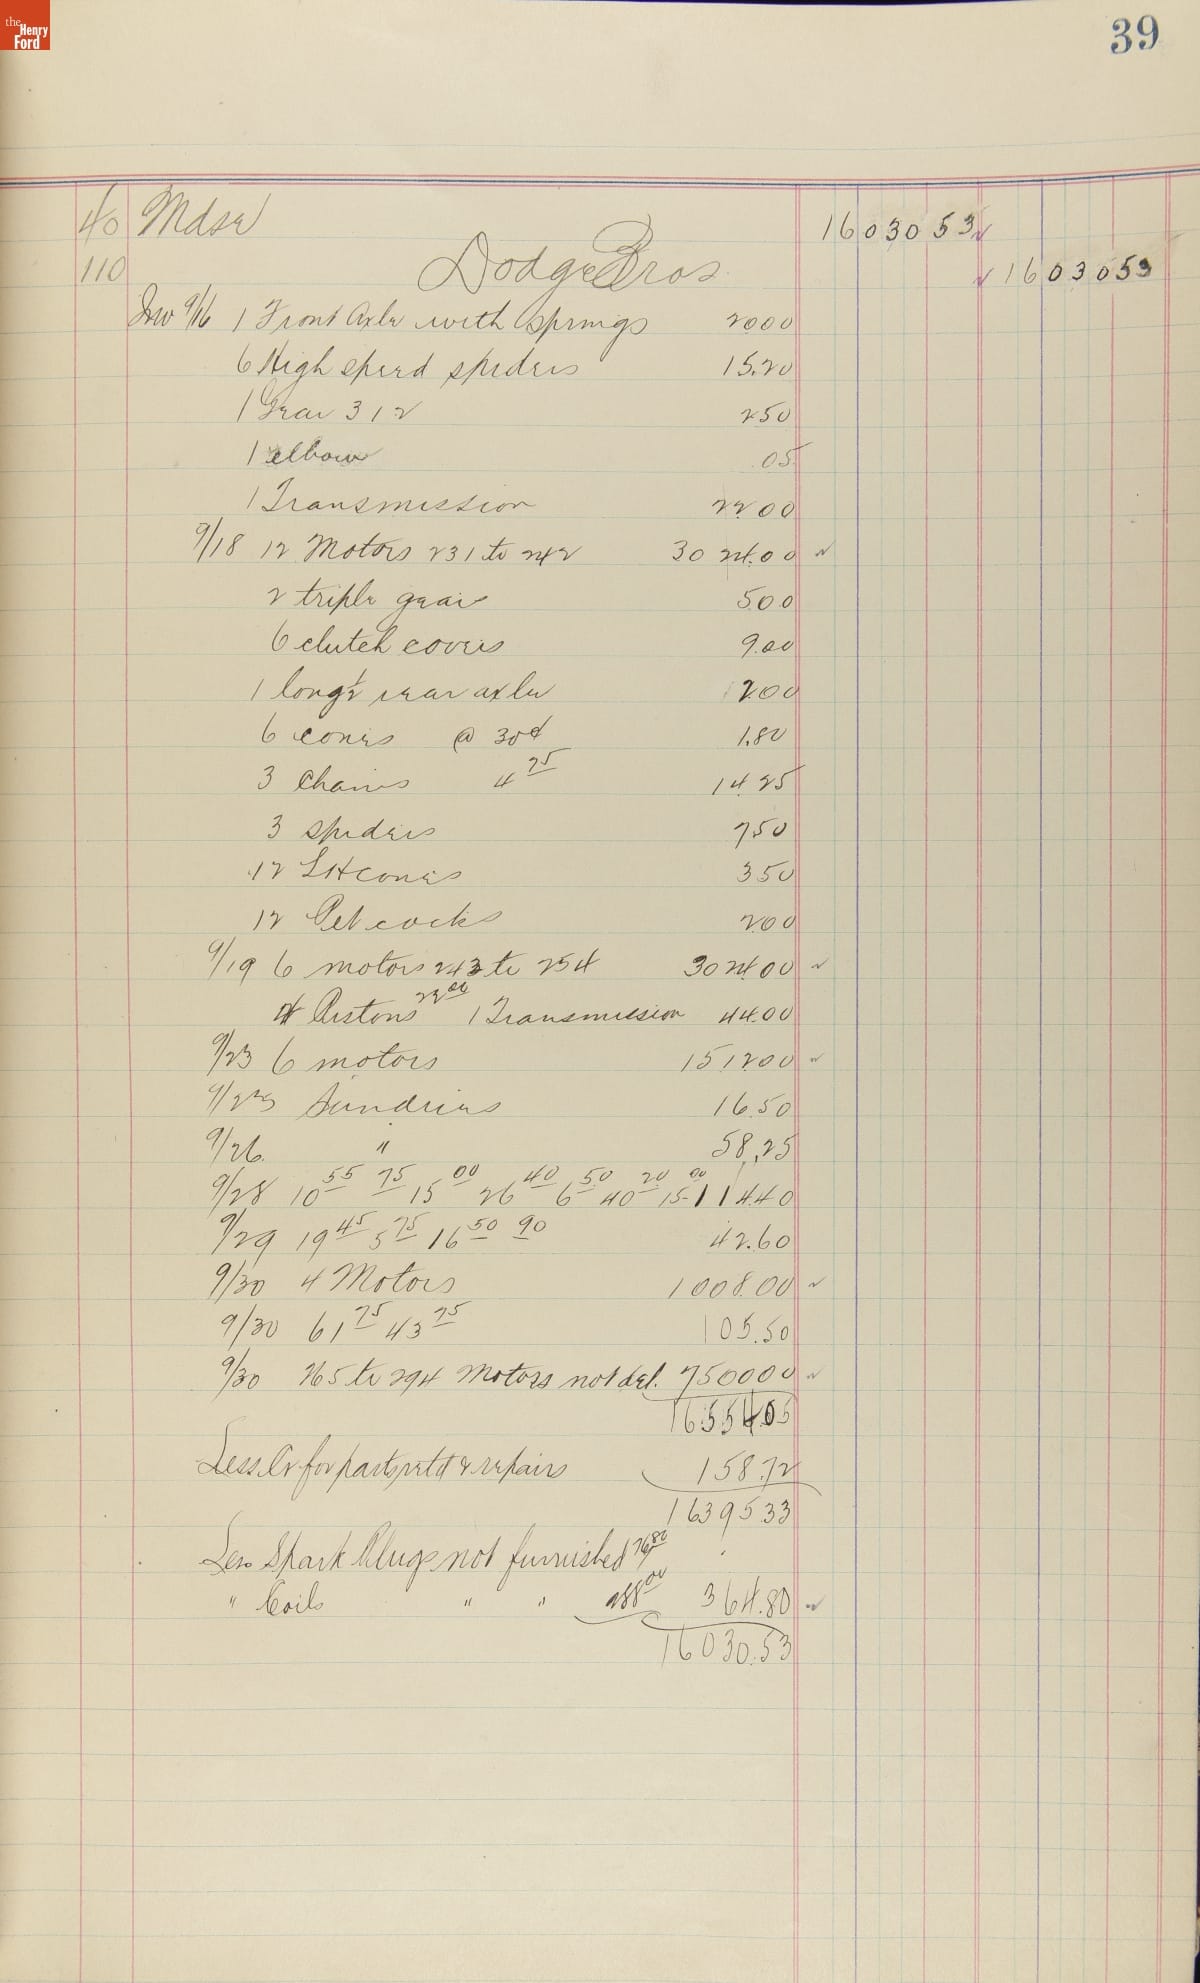 the
Henry
Ford
39
40 Mdse 16030 53
Dodge Bros
110 16030 53
Inv 9/16 1 Front Axle with springs 20 00
6 High speed spiders 15.20
1 Gear 312 2 50
1 elbow 05
1 Transmission 22 00
9/18 12 Motors 231 to 242 30 24.00
2 triple gears 5.00
6 clutch covers 9.00
1 long 1/2 rear axle 12.00
6 cones @ 30¢ 1.80
3 Chains 4 75 14 25
3 spiders 7 50
12 LH cones 3 50
12 Pet cocks 2.00
9/19 6 motors 243 to 254 30 24 00
4 Pistons 22 00 1 Transmission 44.00
9/23 6 motors 15 12 00
9/25 Sundries 16.50
9/26 " 58.25
9/28 10 55 75 15 00 26 40 6 50 40 20 15 00 114.40
9/29 19 45 5 75 16 50 90 42.60
9/30 4 Motors 1008.00
9/30 61 75 43 75 105.50
9/30 265 to 294 Motors not del. 7500 00
16554.05
Less Cr for parts retd & repairs 158.72
16395 33
Less Spark Plugs not furnished 76 80
" Coils " " 288 00 364.80
16030.53